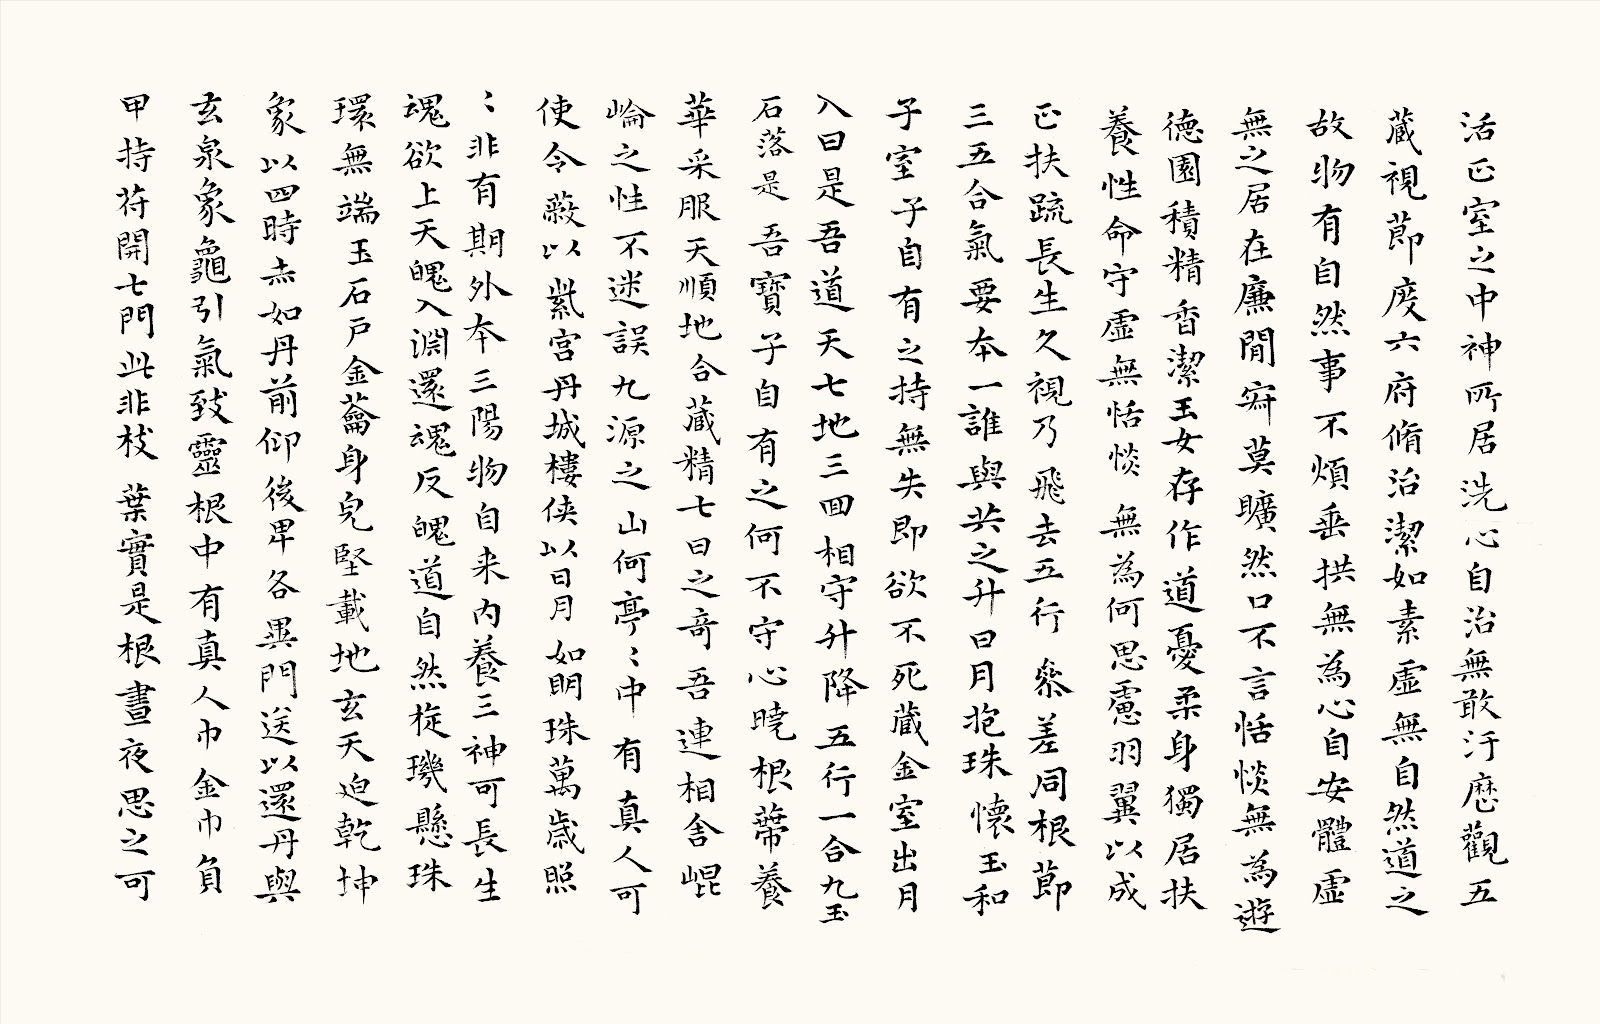 活正室之中神所居洗心自治無敢汙歷觀五
藏視節度六府脩治潔如素虛無自然道之
故物有自然事不煩垂拱無為心自安體虛
無之居在廉閒寂莫曠然口不言恬惔無為遊
德園積精香潔玉女存作道憂柔身獨居扶
養性命守虛無恬惔無為何思慮羽翼以成
正扶疏長生久視乃飛去五行參差同根節
三五合氣要本一誰與共之升日月抱珠懷玉和
子室子自有之持無失即欲不死藏金室出月
入日是吾道天七地三回相守升降五行一合九玉
石落是吾寶子自有之何不守心曉根蒂養
華采服天順地合藏精七日之奇吾連相舍崐
崙之性不迷誤九源之山何亭〻中有真人可
使令蔽以紫宮丹城樓俠以日月如明珠萬歲照
〻非有期外本三陽物自來內養三神可長生
魂欲上天魄入淵還魂反魄道自然旋璣懸珠
環無端玉石戶金籥身皃堅載地玄天迫乾坤
象以四時赤如丹前仰後卑各異門送以還丹與
玄泉象龜引氣致靈根中有真人巾金巾負
甲持符開七門此非枝葉實是根晝夜思之可